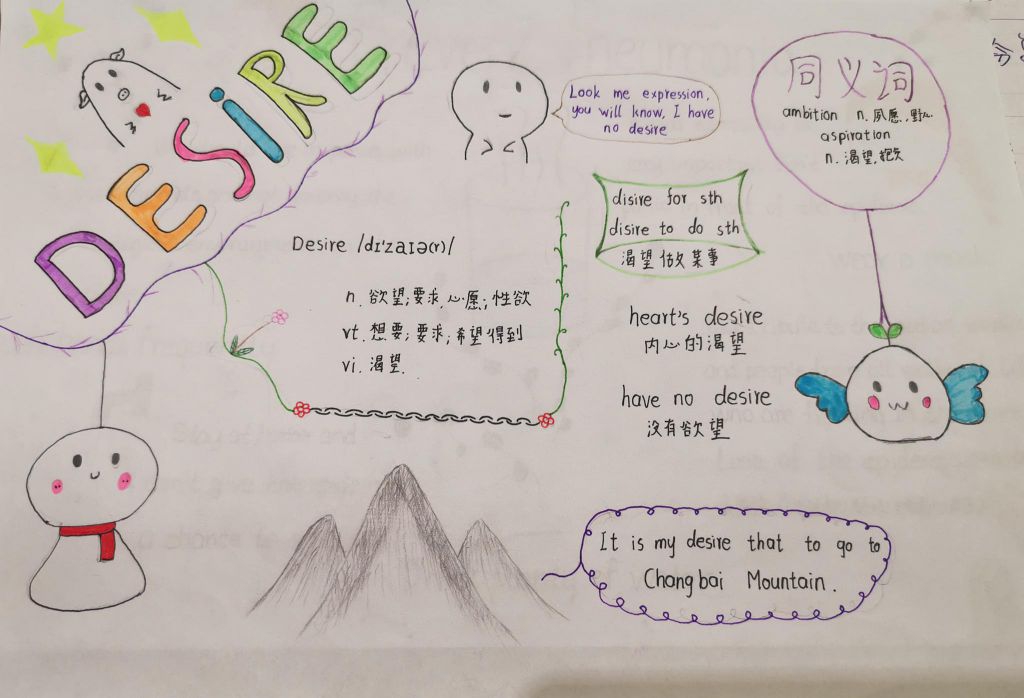 DESiRE
Look me expression,
you will know, I have
no desire
同义词
ambition n. 夙愿,野心
aspiration
n. 渴望,抱负
disire for sth
disire to do sth
渴望做某事
Desire /dɪ'zaɪə(r)/
n. 欲望;要求,心愿;性欲
vt. 想要;要求;希望得到
vi. 渴望.
heart's desire
内心的渴望
have no desire
没有欲望
It is my desire that to go to
Changbai Mountain.